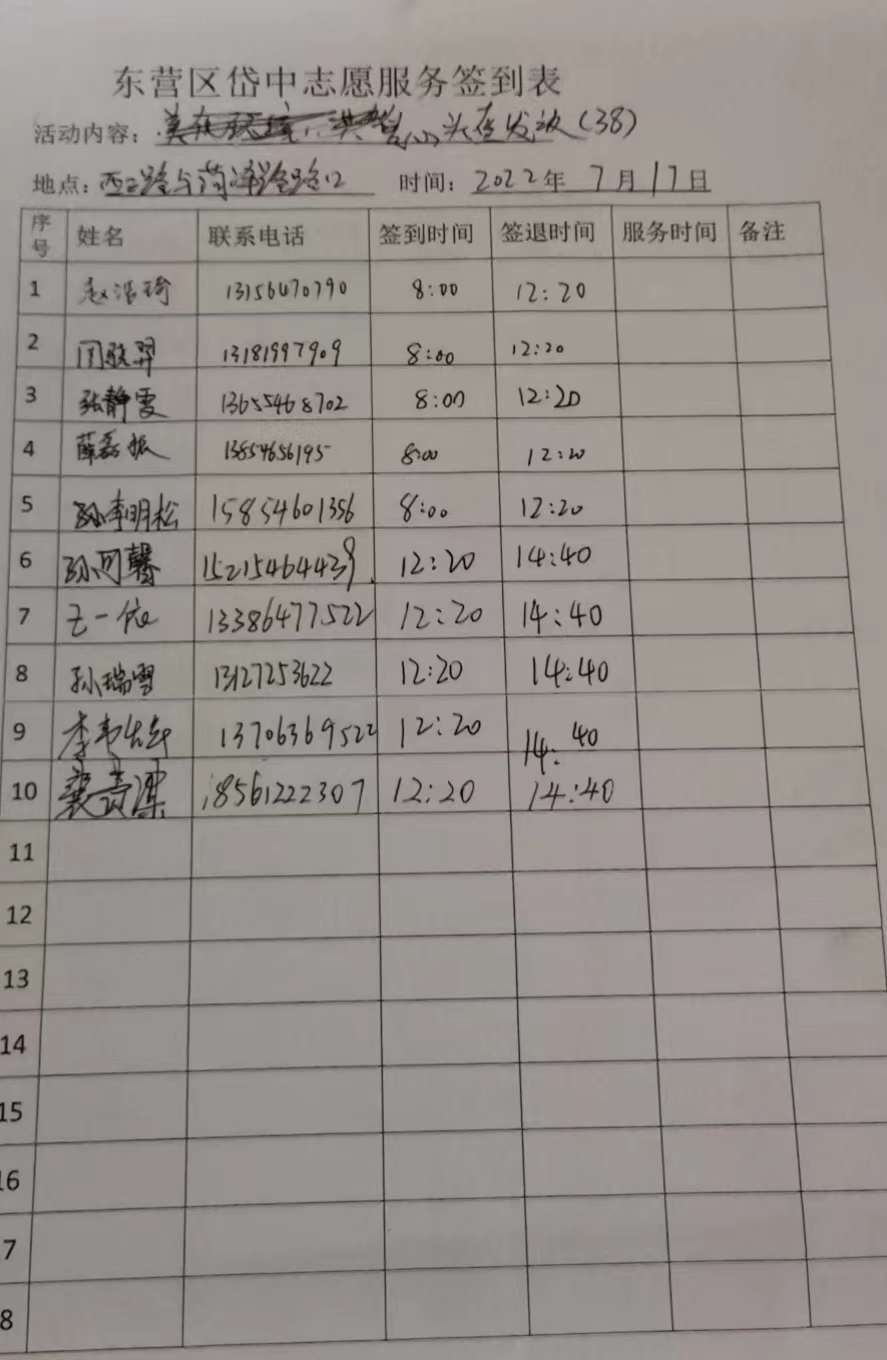 东营区岱中志愿服务签到表
活动内容： 头盔发放（38）
地点：西二路与菏泽路路口 时间：2022年7月17日
序号 姓名 联系电话 签到时间 签退时间 服务时间 备注
1 赵浩琦 13156470790 8:00 12:20
2 闫骁羿 13181997909 8:00 12:20
3 张静雯 13655468702 8:00 12:20
4 薛磊振 13854656195 8:00 12:20
5 孙李明松 15854601356 8:00 12:20
6 孙可馨 15215464439 12:20 14:40
7 王一依 13386477522 12:20 14:40
8 孙瑞雪 13127253622 12:20 14:40
9 李 13706369522 12:20 14:40
10 18561222307 12:20 14:40
11
12
13
14
15
16
7
8